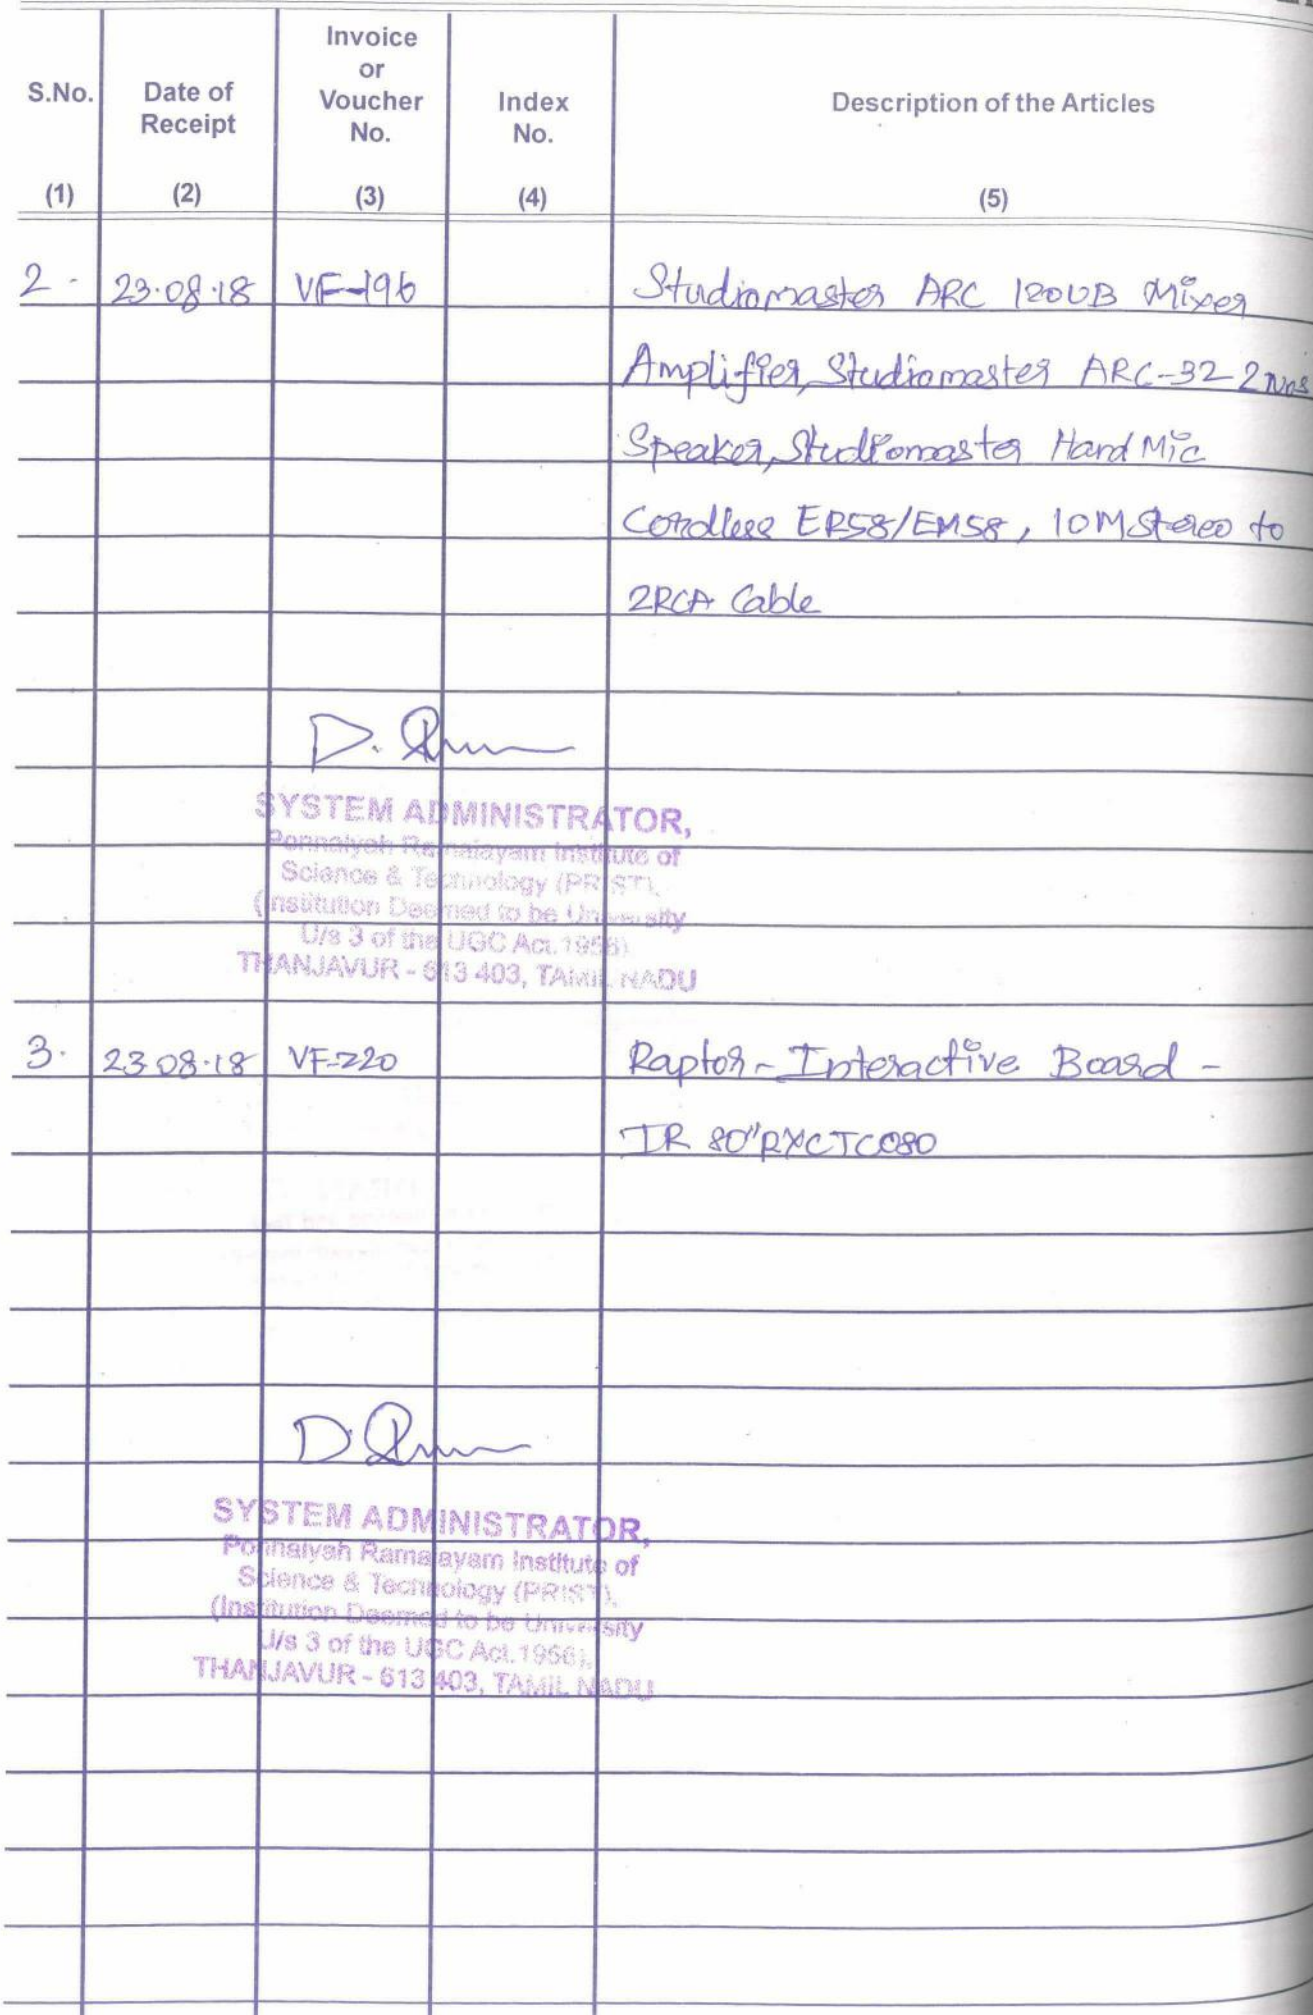 S.No. Date of Receipt Invoice or Voucher No. Index No. Description of the Articles
(1) (2) (3) (4) (5)
2. 23.08.18 VF-196 Studiomaster ARC 120UB Mixer
Amplifier, Studiomaster ARC-32-2Nos
Speaker, Studiomaster Hand Mic
Cordless ER58/EM58, 10M Stereo to
2RCA Cable
D.
SYSTEM ADMINISTRATOR,
Ponnaiyah Ramajayam Institute of
Science & Technology (PRIST),
(Institution Deemed to be University
U/s 3 of the UGC Act. 1956)
THANJAVUR - 613 403, TAMIL NADU
3. 23.08.18 VF-220 Raptor-Interactive Board -
IR 80" RXCTC080
D.
SYSTEM ADMINISTRATOR,
Ponnaiyah Ramajayam Institute of
Science & Technology (PRIST),
(Institution Deemed to be University
U/s 3 of the UGC Act. 1956),
THANJAVUR - 613 403, TAMIL NADU